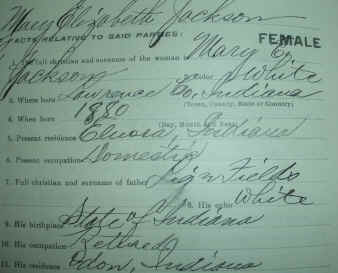 Mary Elizabeth Jackson
FACTS RELATIVE TO SAID PARTIES: FEMALE
1. Full christian and surname of the woman is Mary E.
Jackson Color White
3. Where born Lawrence Co. Indiana
(Town, County, State or Country)
4. When born 1880
(Day, Month and Year)
5. Present residence Elnora, Indiana
6. Present occupation Domestic
7. Full christian and surname of father Fields
8. His color White
9. His birthplace State of Indiana
10. His occupation Retired
11. His residence Odon, Indiana